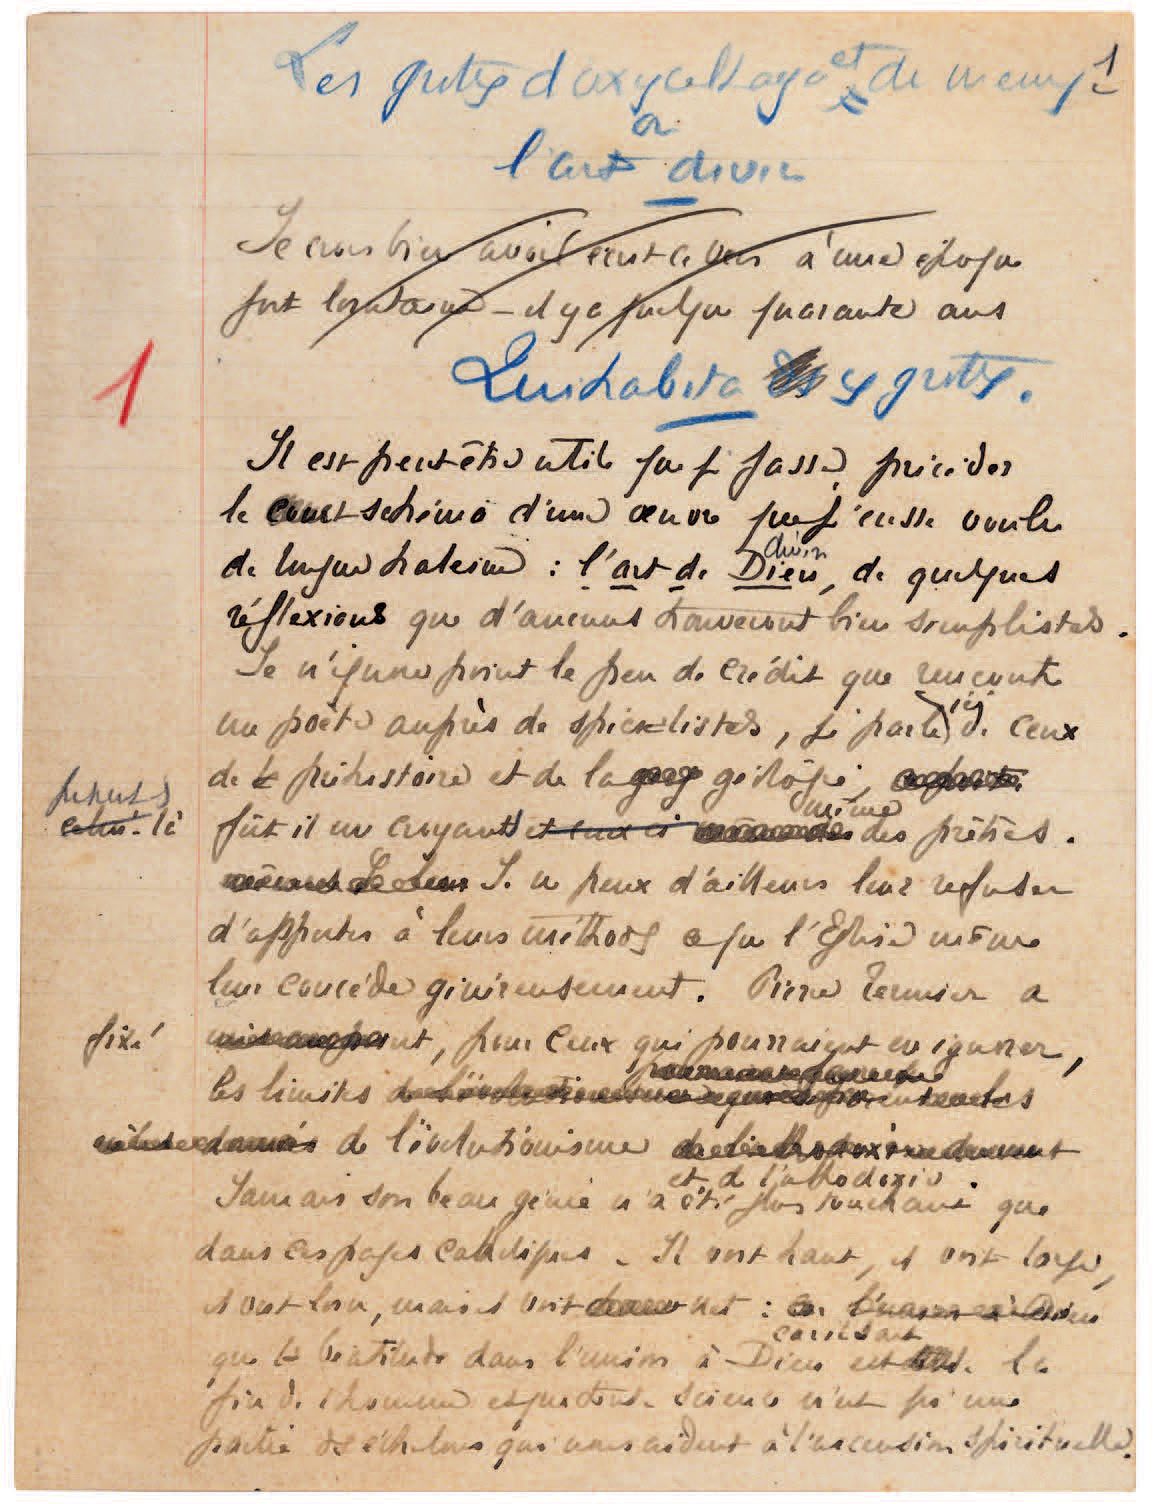 Les grottes d'oxyceltaya et de
1
ou
l'art divin
Je crois bien avoir écrit ce vers à une époque
fort lointaine – il y a quelque quarante ans
1
Qui habita ces grottes.
Il est peut-être utile que je fasse précéder
le court schéma d'une œuvre que j'eusse voulu
de longue haleine : l'art de Dieu divin, de quelques
réflexions que d'aucuns trouveront bien simplistes.
Je n'ignore point le peu de crédit que rencontre
un poète auprès de spécialistes, je parle ici de ceux
de la préhistoire et de la géologie,
celui-là
fût il un croyant et ceux ci même des prêtres.
Je ne peux d'ailleurs leur refuser
d'apporter à leurs méthodes ce que l'Eglise même
leur concède généreusement. Pierre Termier a
fixé
, pour ceux qui pourraient en ignorer,
les limites
de l'évolutionisme
et de l'orthodoxie.
Jamais son beau génie n'a été plus touchant que
dans ces pages catholiques. Il voit haut, il voit large,
il voit loin, mais il voit net :
que la béatitude dans l'union à Dieu est la
fin de l'homme et que toute science n'est qu'une
partie des échelons qui nous aident à l'ascension spirituelle.